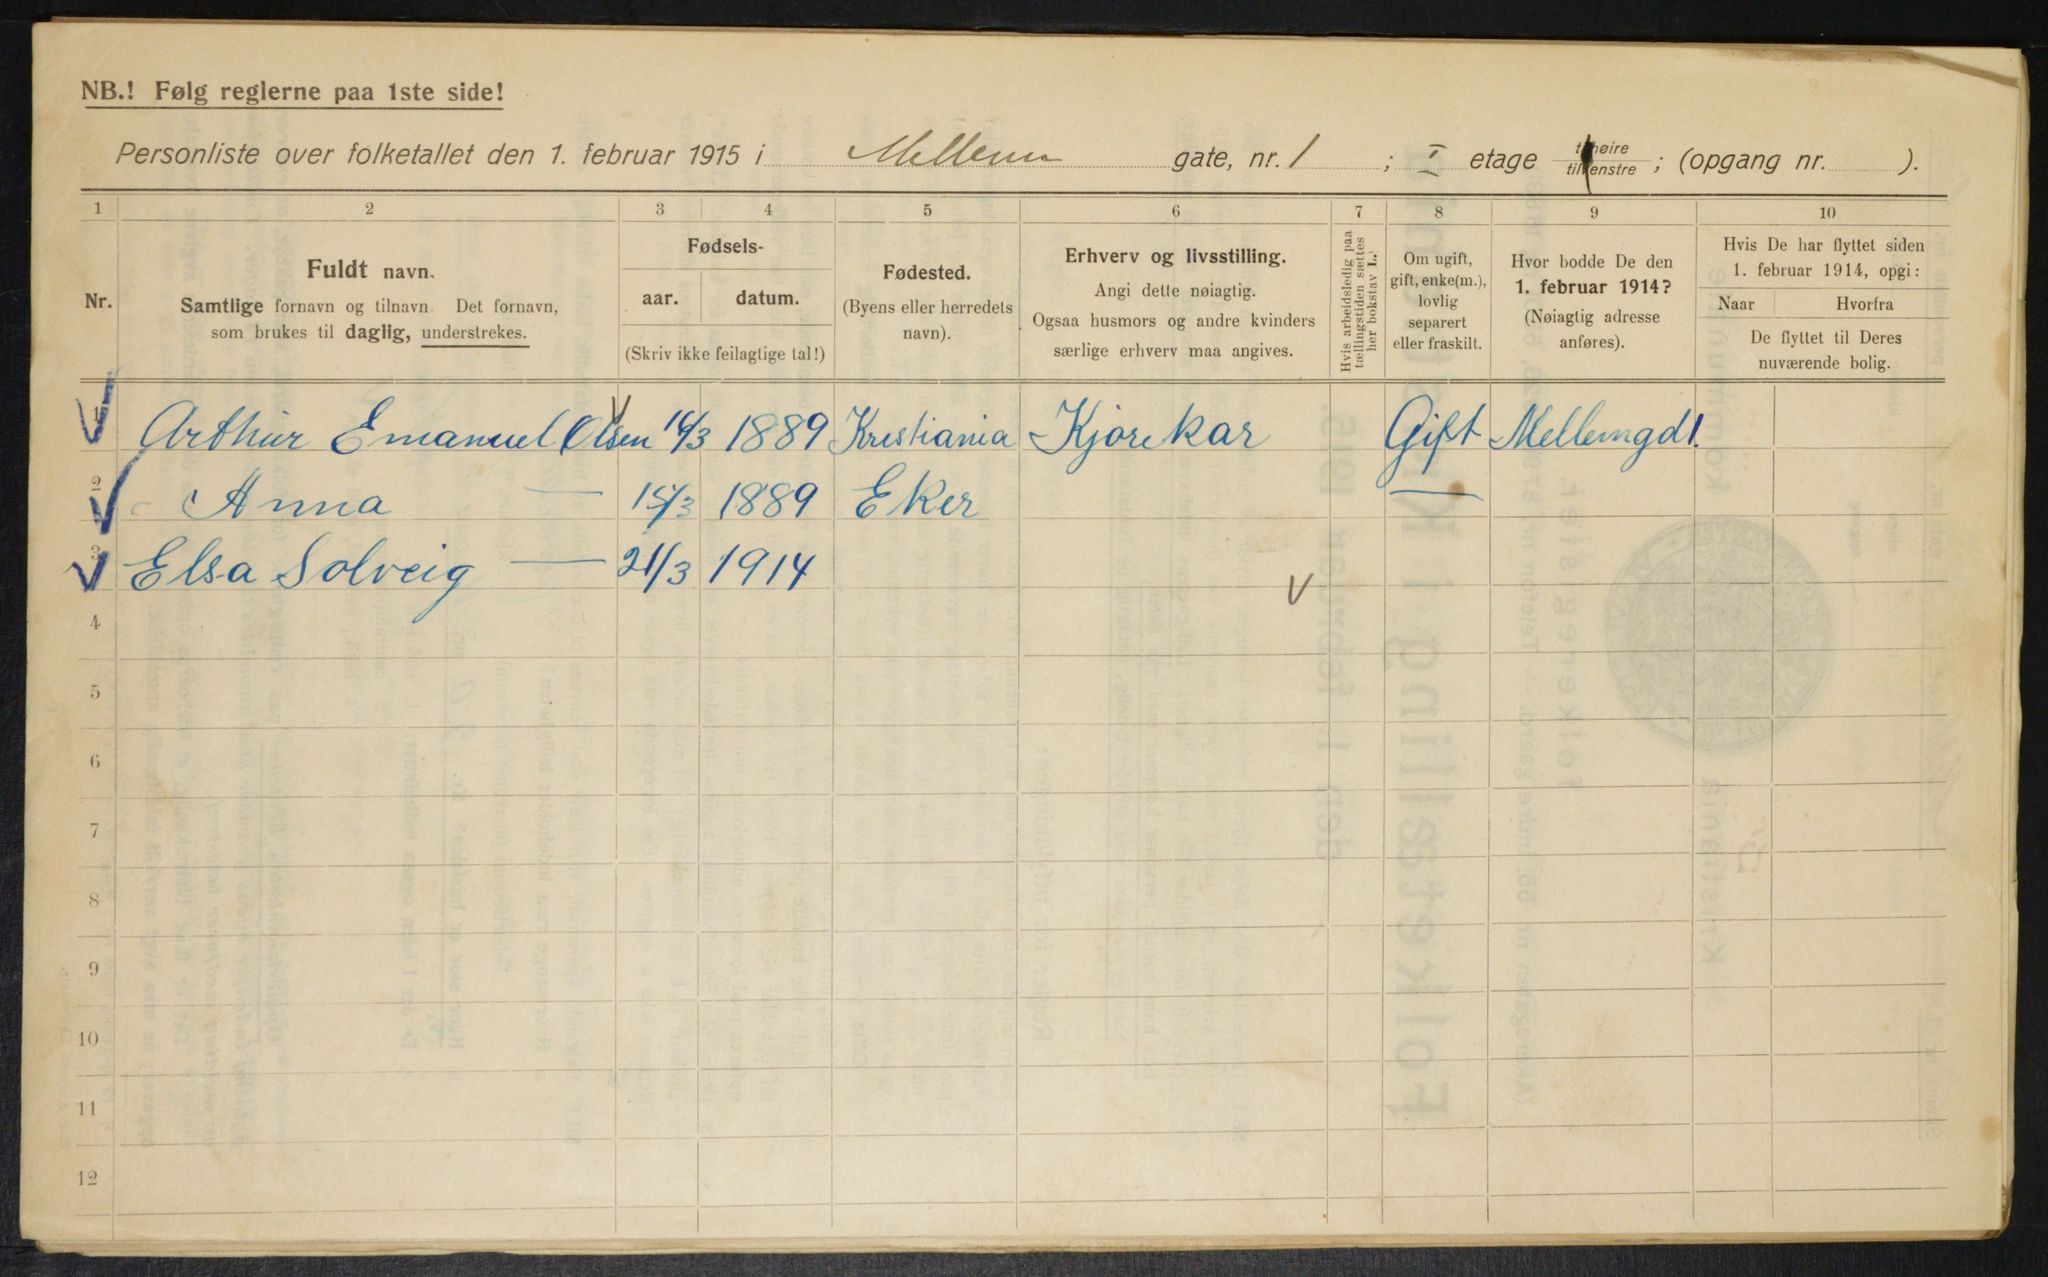 NB.! Følg reglerne paa 1ste side!
Personliste over folketallet den 1. februar 1915 i Mellem gate, nr. 1 ; I etage tilhøire tilvenstre ; (opgang nr. ).
1 2 3 4 5 6 7 8 9 10
Nr.
Fuldt navn.
Samtlige fornavn og tilnavn. Det fornavn,
som brukes til daglig, understrekes.
Fødsels-
aar. datum.
(Skriv ikke feilagtige tal!)
Fødested.
(Byens eller herredets
navn).
Erhverv og livsstilling.
Angi dette nøiagtig.
Ogsaa husmors og andre kvinders
særlige erhverv maa angives.
Hvis arbeidsledig paa
tællingstiden sættes
her bokstav L.
Om ugift,
gift, enke(m.),
lovlig
separert
eller fraskilt.
Hvor bodde De den
1. februar 1914?
(Nøiagtig adresse
anføres).
Hvis De har flyttet siden
1. februar 1914, opgi:
Naar Hvorfra
De flyttet til Deres
nuværende bolig.
1 Arthur Emanuel Olsen 16/3 1889 Kristiania Kjørekar Gift Mellemgd 1.
2 Anna — 15/3 1889 Eker —
3 Elsa Solveig — 21/3 1914
4
5
6
7
8
9
10
11
12